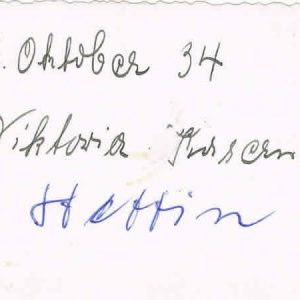 . Oktober 34
Viktoria Kasern
Stettin